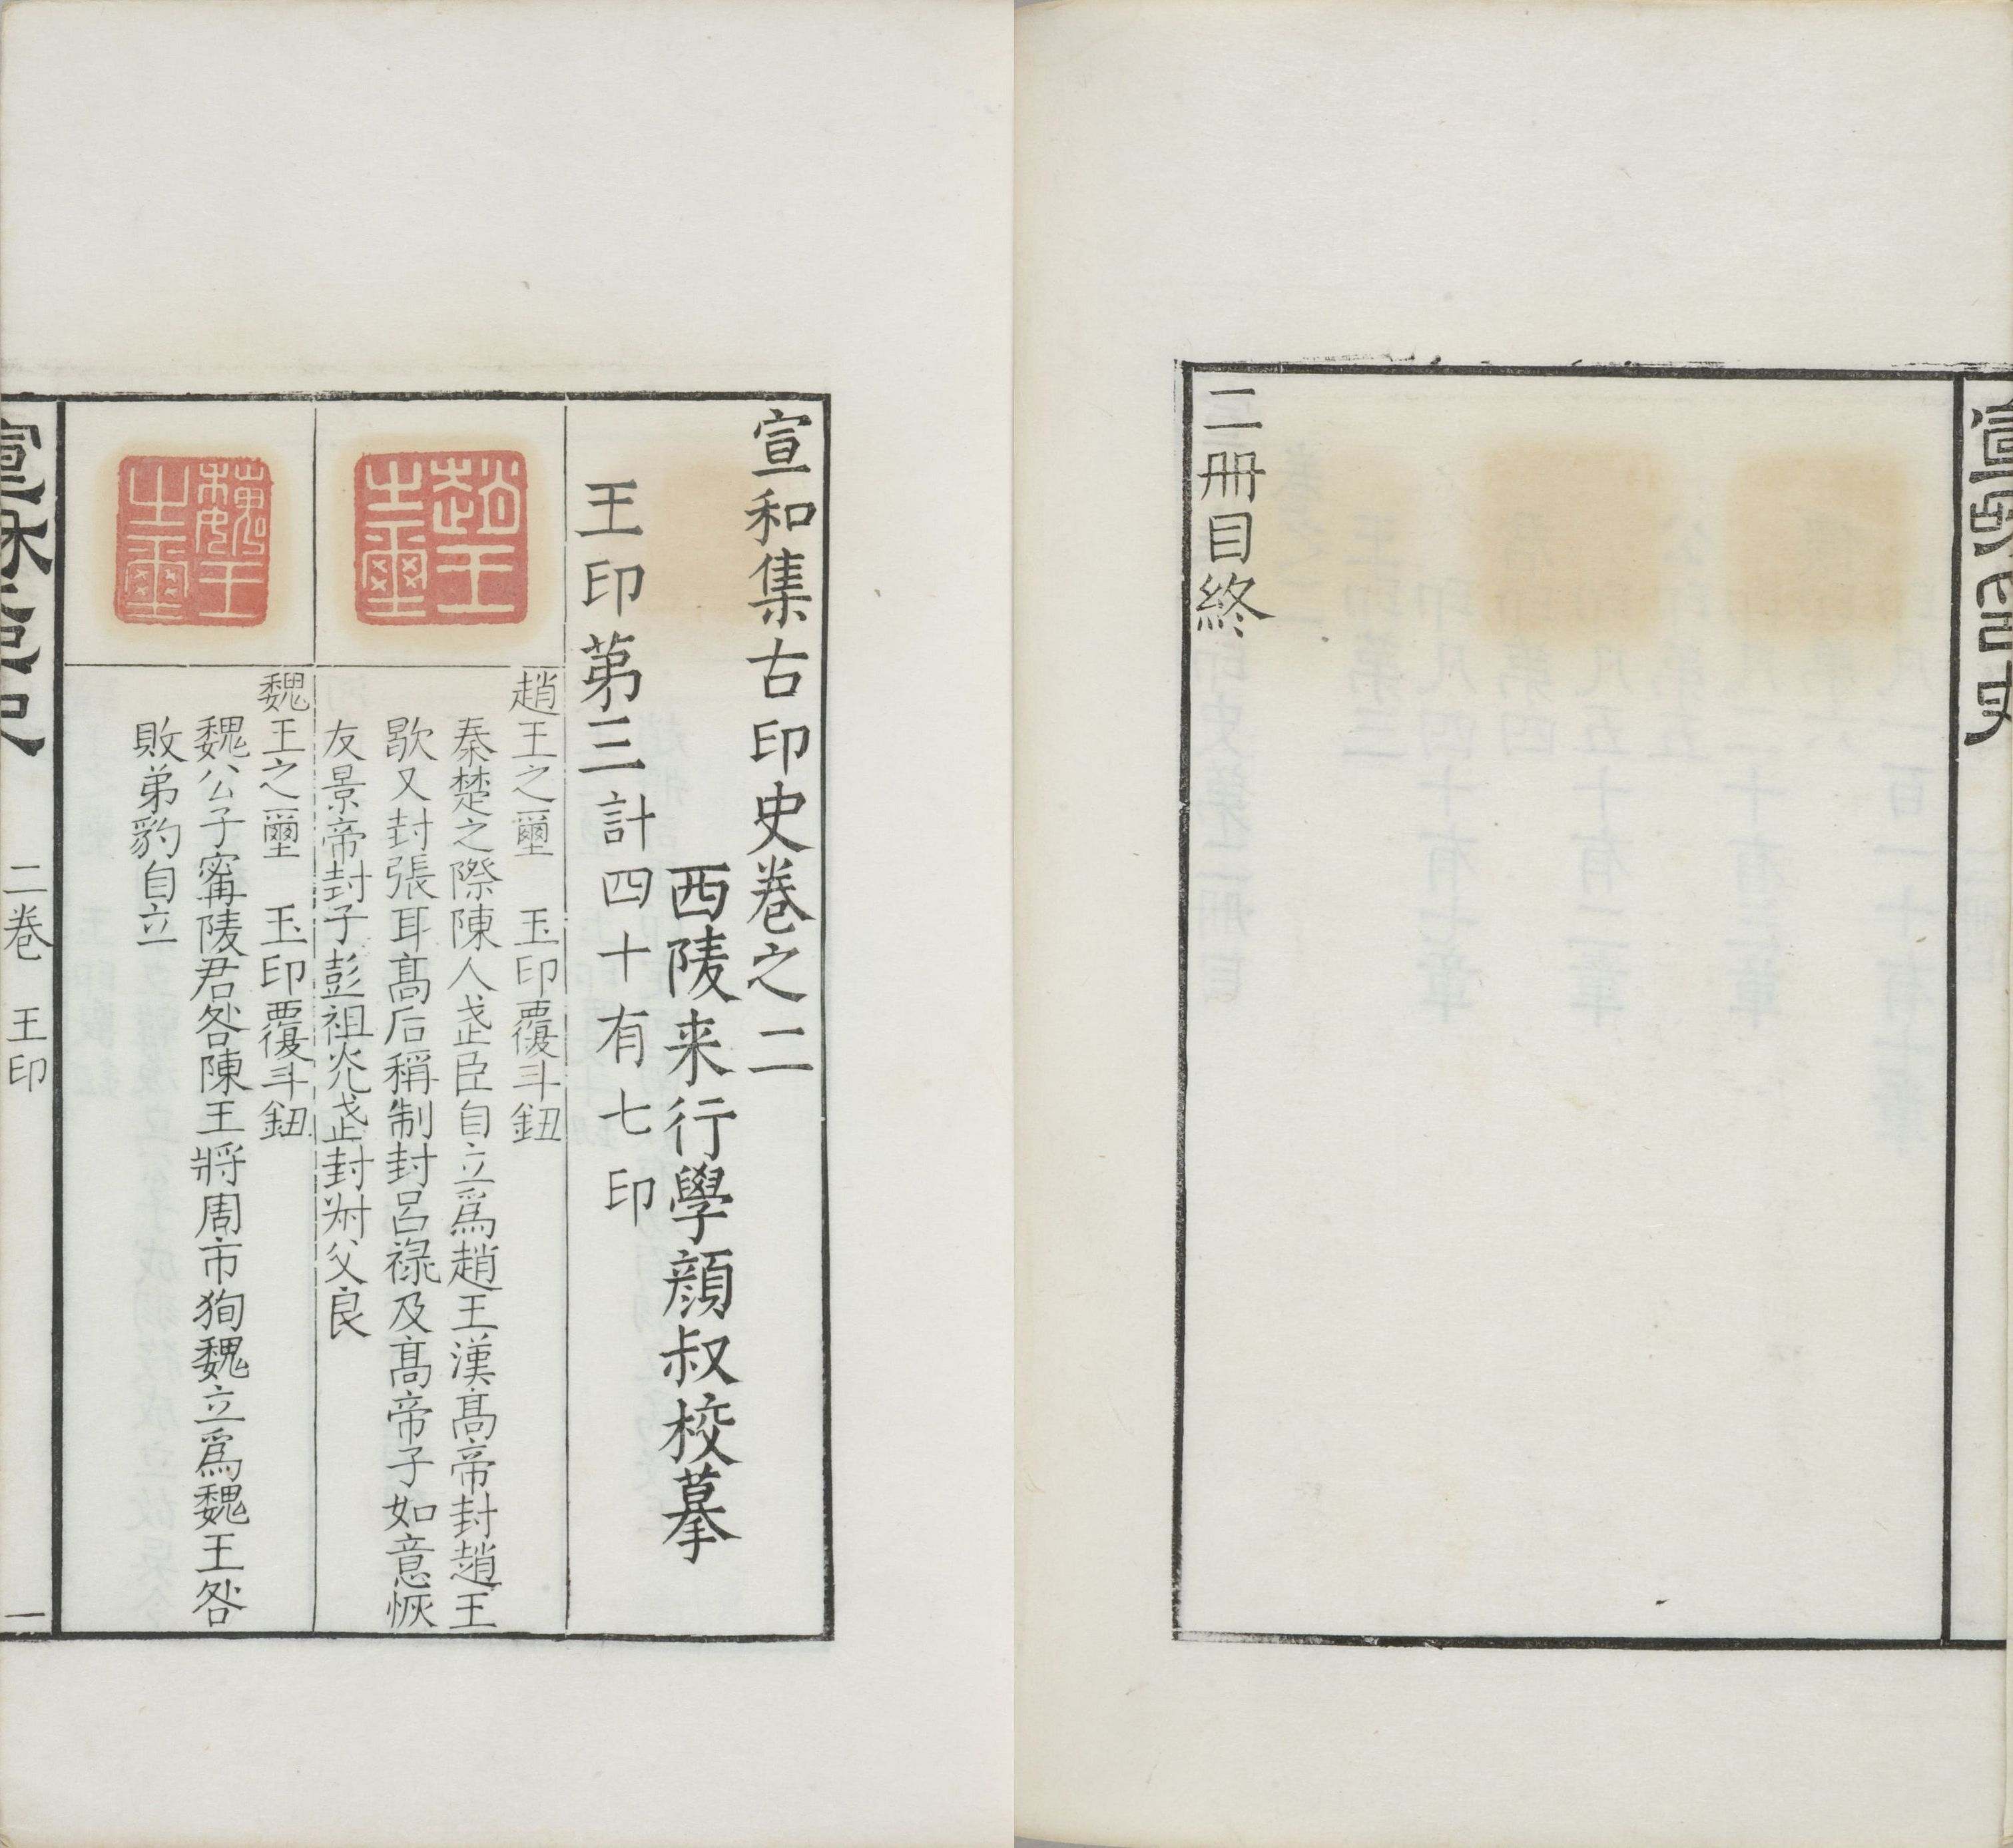 二冊目終
宣和集古印史卷之二
西陵来行學顔叔校摹
王印第三計四十有七印
趙王之璽
趙王之壐　玉印覆斗鈕
秦楚之際陳人武臣自立爲趙王漢髙帝封趙王
歇又封張耳髙后稱制封呂禄及髙帝子如意恢
友景帝封子彭祖光武封叔父良
魏王之璽
魏王之壐　玉印覆斗鈕
魏公子寗陵君咎陳王將周市狥魏立爲魏王咎
敗弟豹自立
二卷　王印　一